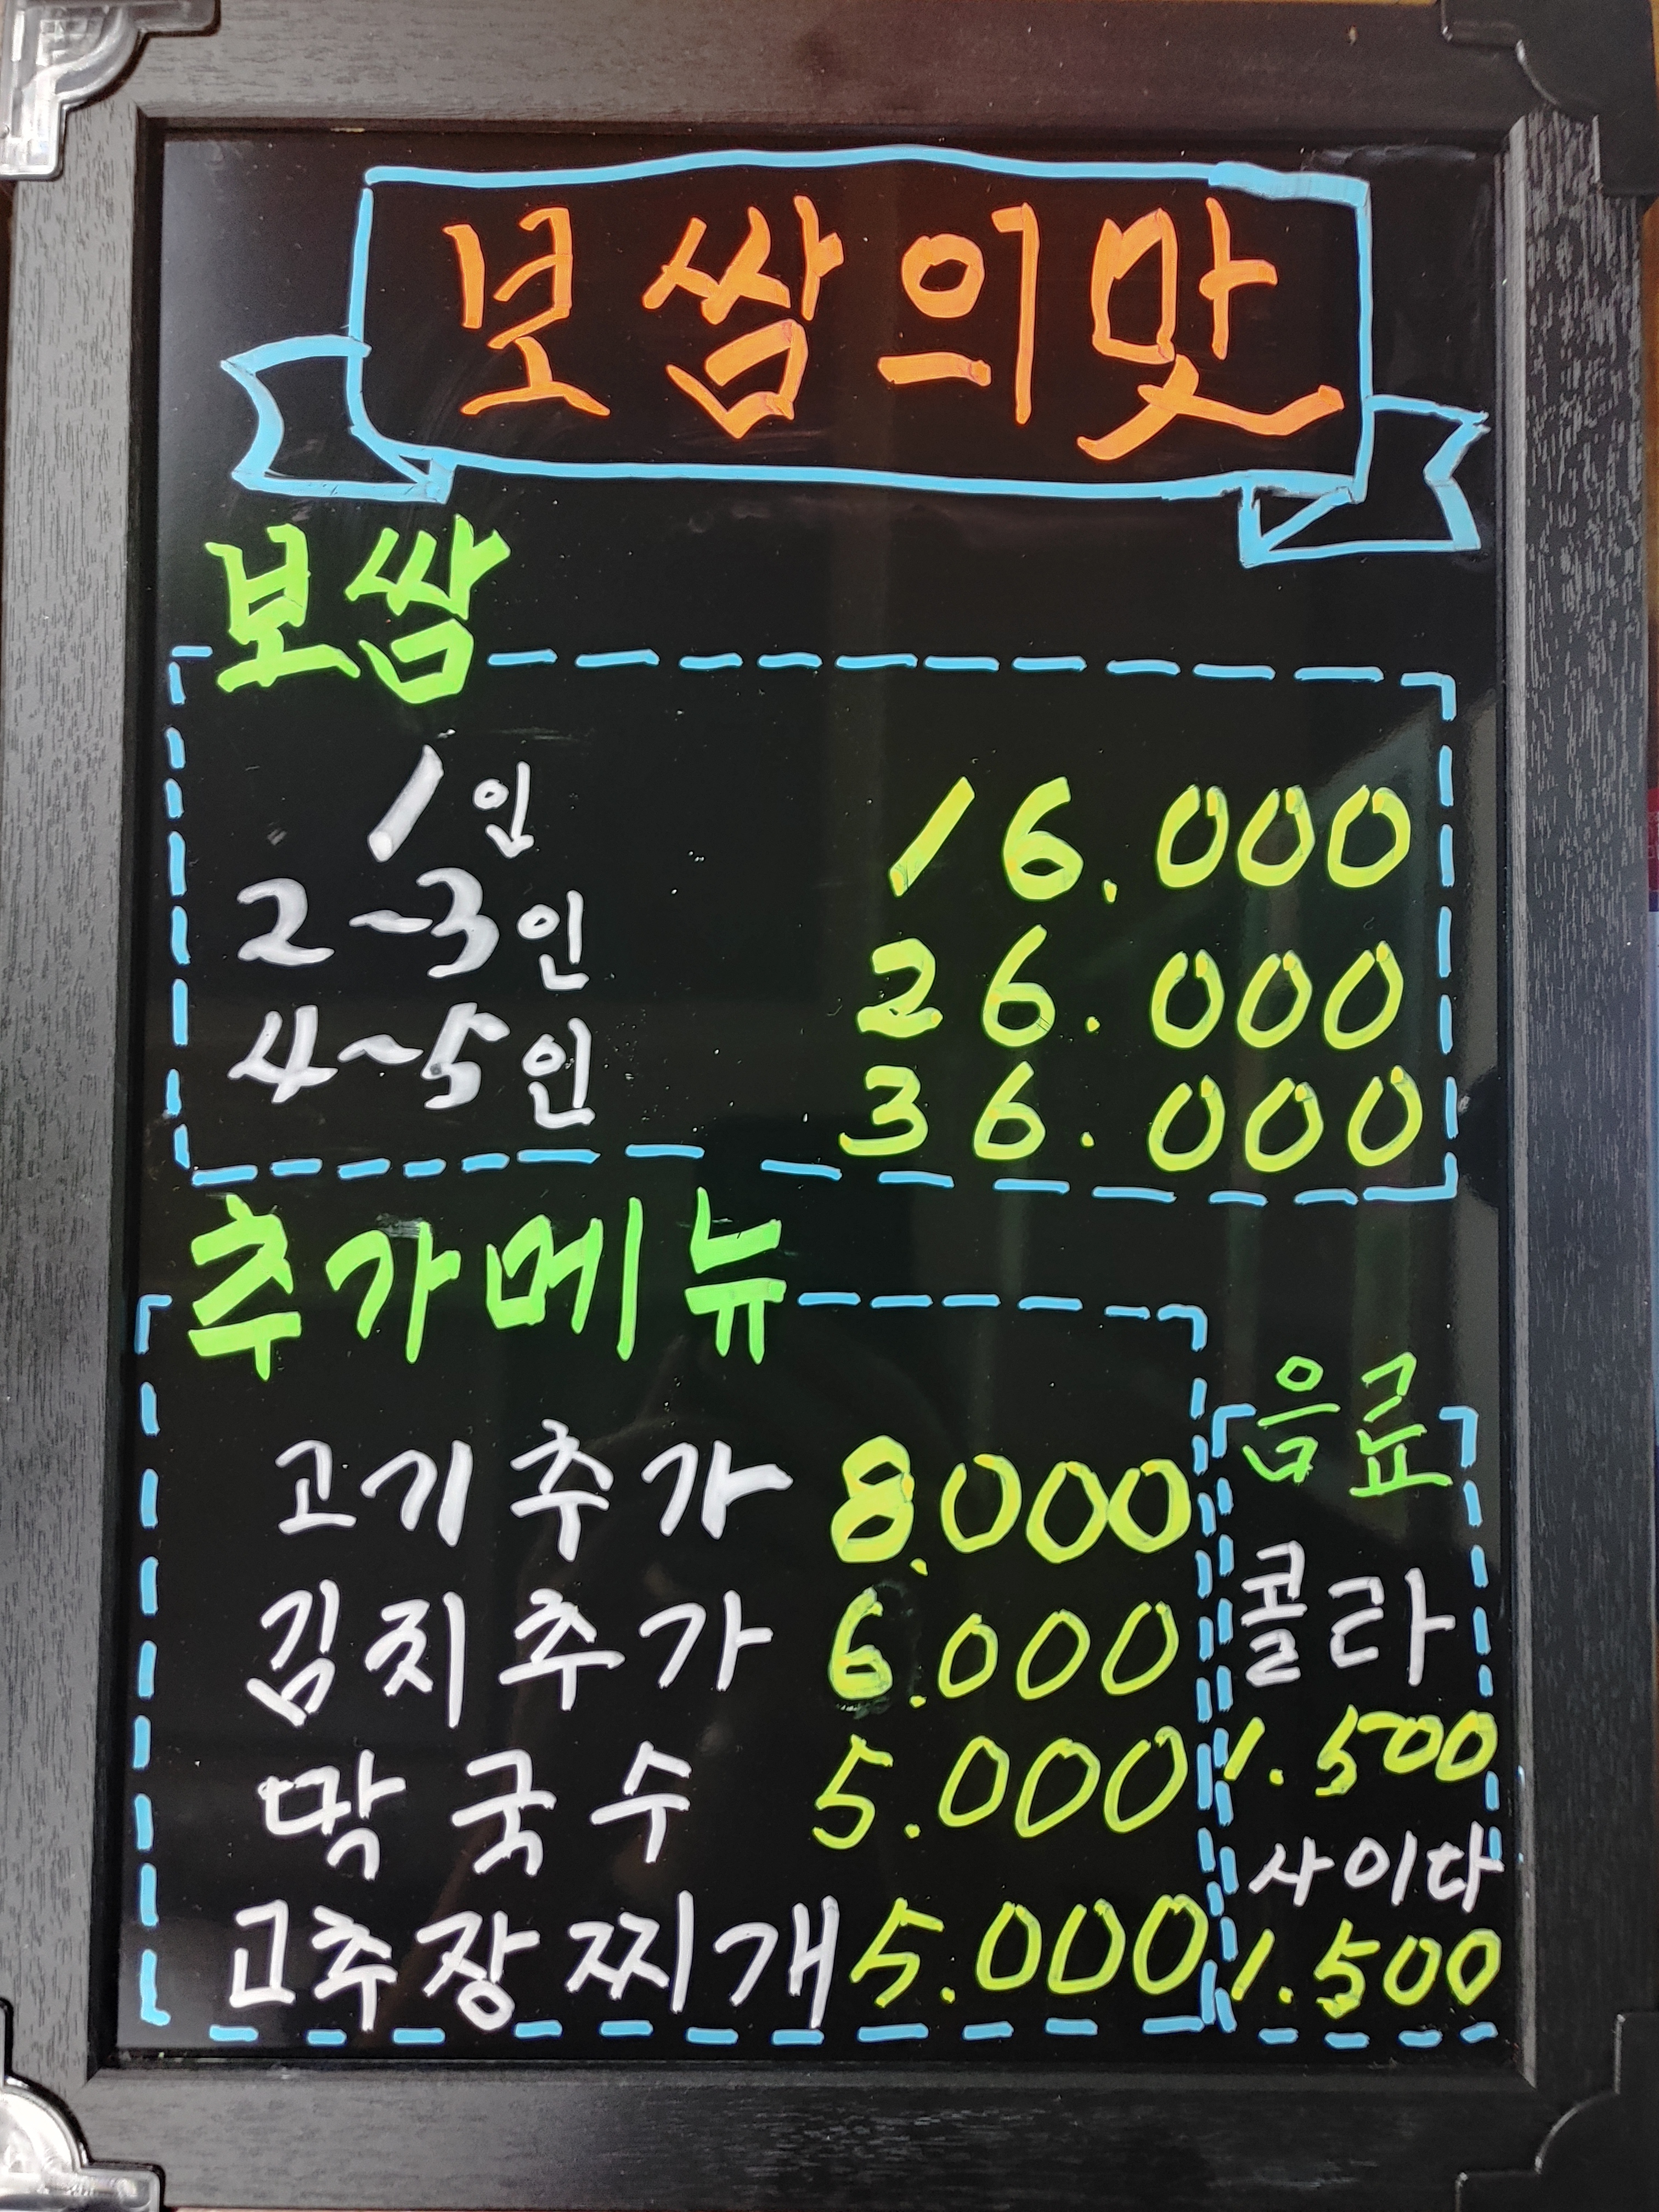 보쌈의맛
보쌈
1인 16.000
2~3인 26.000
4~5인 36.000
추가메뉴
고기추가 8.000
김치추가 6.000
막국수 5.000
고추장찌개 5.000
음료
콜라
1.500
사이다
1.500